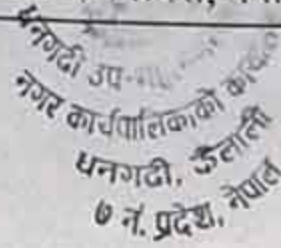 धनगढी उप-
नगर कार्यपालिकाको
धनगढी, कैलाली
७ नं. प्रदेश, नेपाल